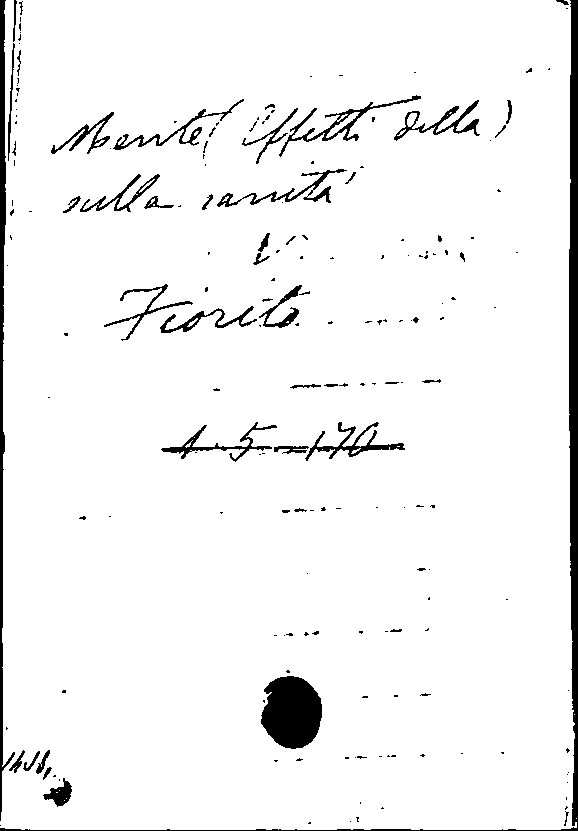 Mente (Effetti della)
sulla sanità
Fiorito
1-5-170